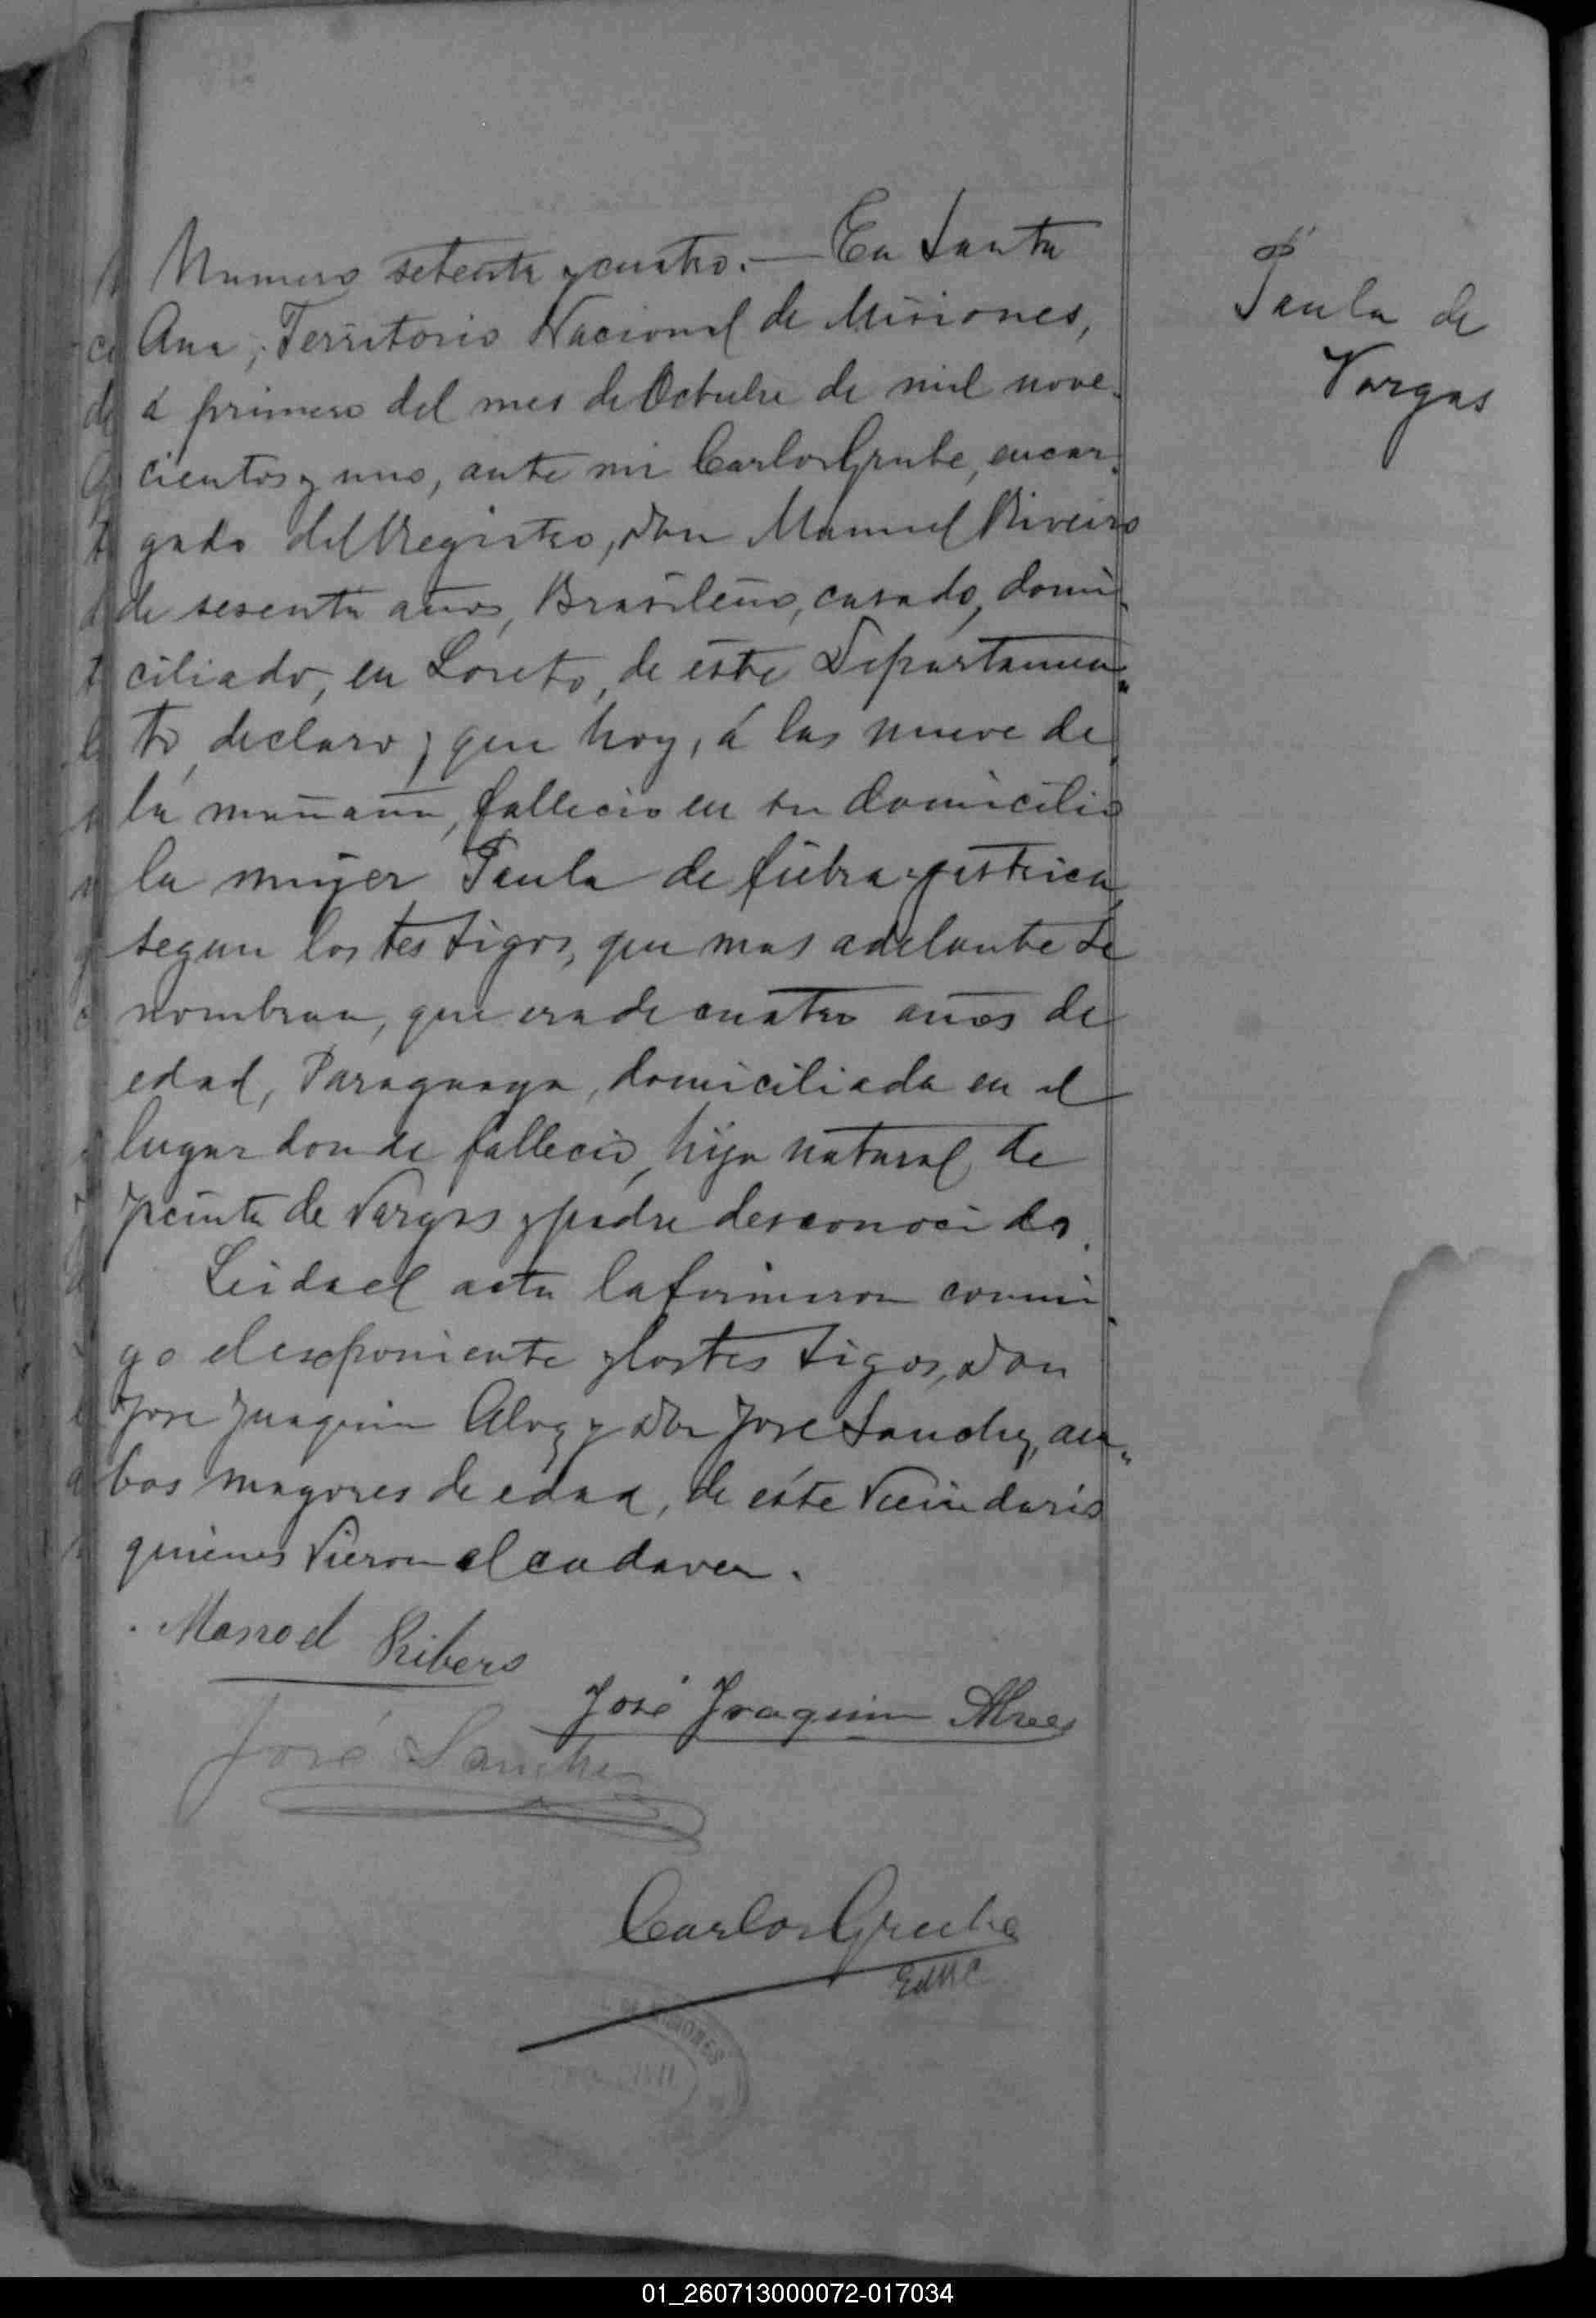 Numero setenta y cuatro. — En Santa
Ana, Territorio Nacional de Misiones,
á primero del mes de Octubre de mil nove-
cientos y uno, ante mi Carlos Grube, encar-
gado del Registro, Don Manuel Riveiro
de sesenta años, Brasileño, casado, domi-
ciliado, en Loreto, de este Departamen-
to, declaro; que hoy, á las nueve de
la mañana, fallecio en su domicilio
la mujer Paula de fiebra gastrica,
segun los testigos, que mas adelante se
nombran, que era de cuatro años de
edad, Paraguaya, domiciliada en el
lugar donde fallecio, hija natural de
Jacinta de Vargas y padre desconocido.
Leida el acta la firmaron conmi-
go el exponiente y los testigos, Don
Jose Juaquin Alvez y Don Jose Sanchez, am-
bos mayores de edad, de éste Vecindario
quienes Vieron el cadaver.
Manoel Ribero
José Joaquim Alves
José Sanchez
Carlos Grube
E del R C
Paula de
Vargas
MISIONES
01_260713000072-017034